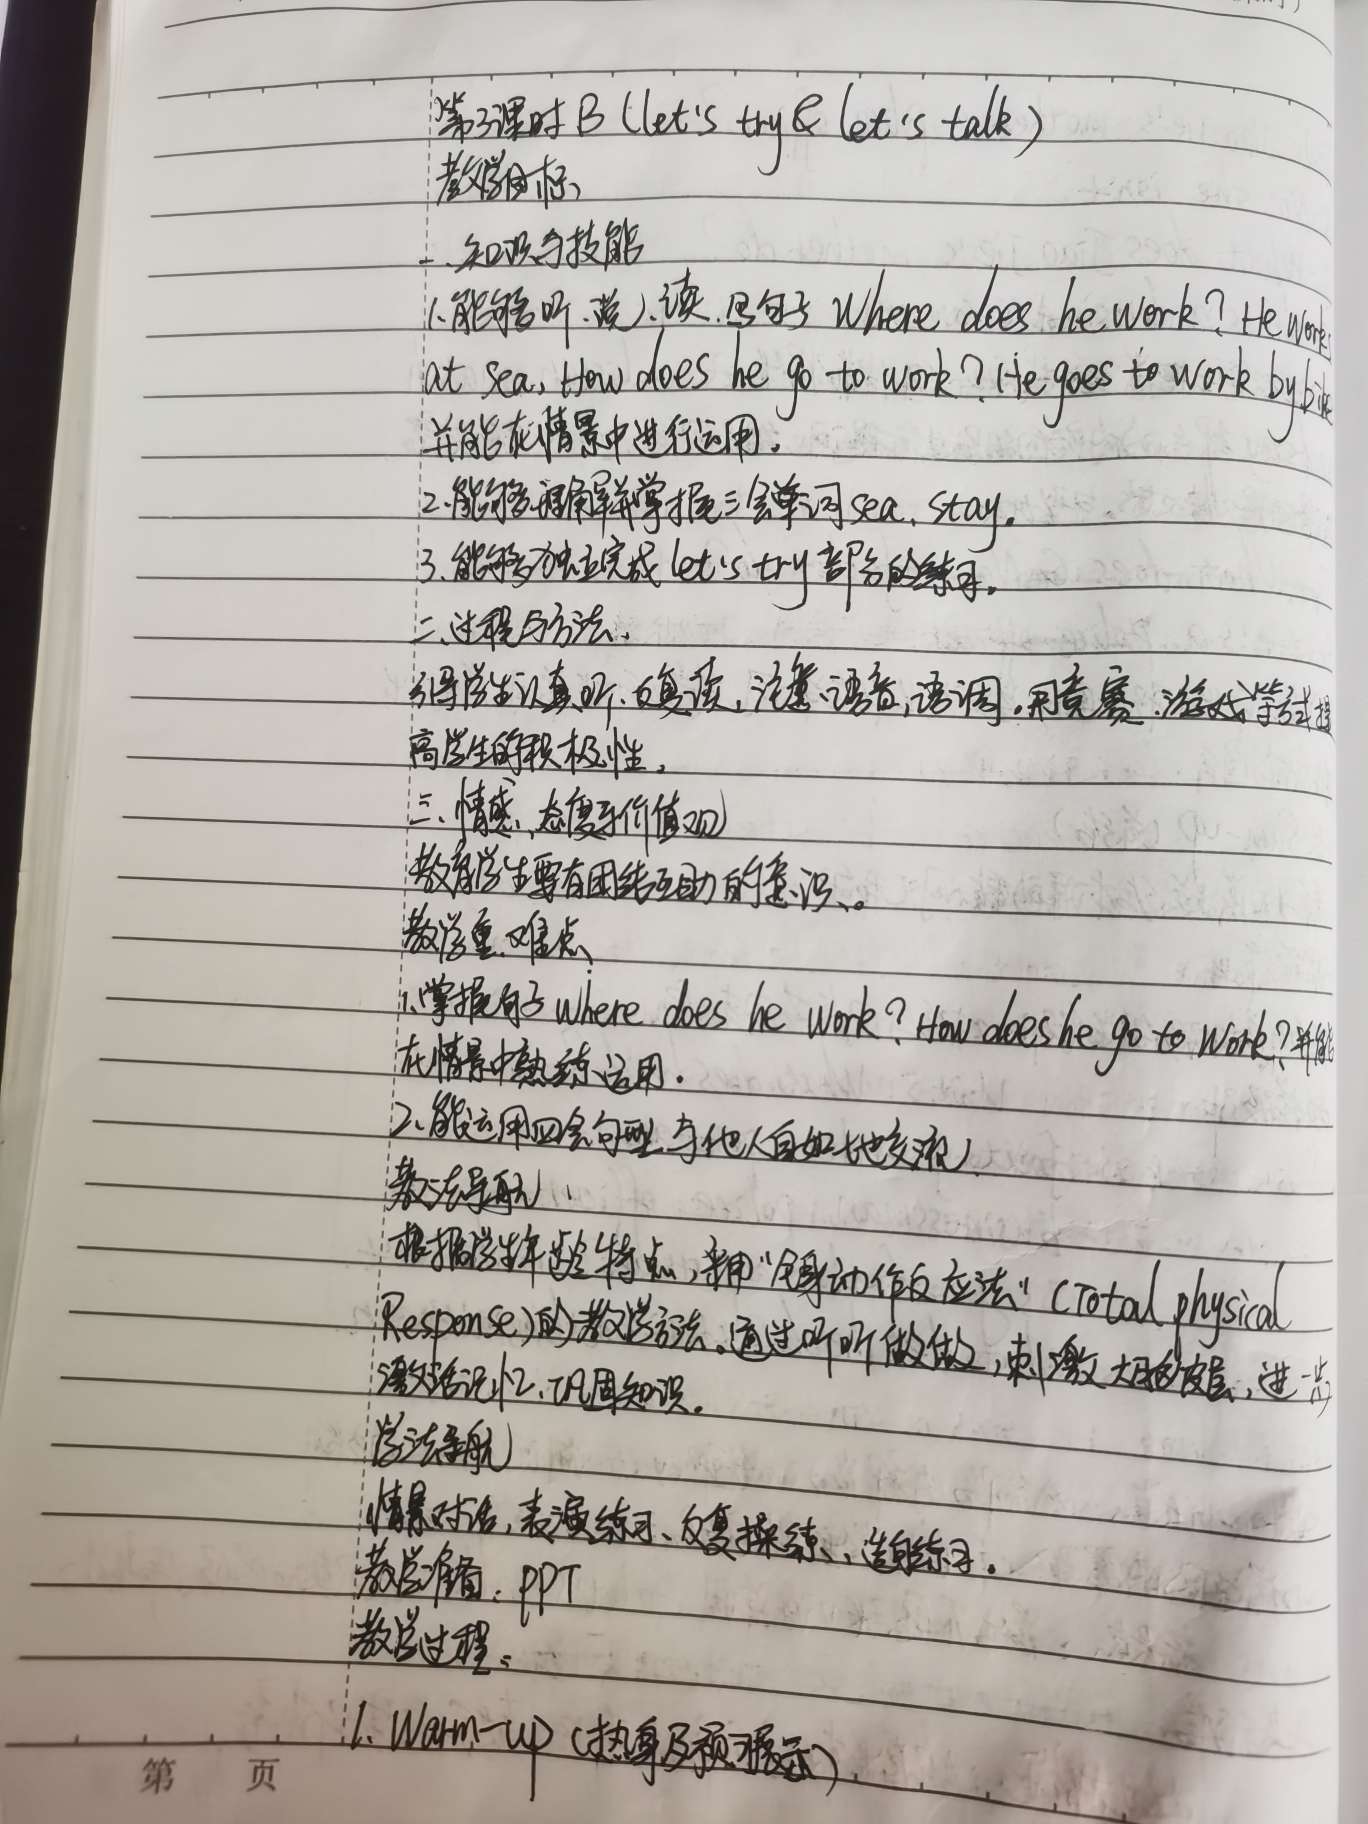 第3课时 B (let's try & let's talk)
教学目标、
一、知识与技能
1、能够听、说、读、写句子 Where does he work? He works
at sea. How does he go to work? He goes to work by bike
并能在情景中进行运用。
2、能够理解并掌握三会单词 sea、stay。
3、能够独立完成 let's try 部分的练习。
二、过程与方法、
引导学生认真听、反复读，注重语音，语调。用竞赛、游戏等方式提
高学生的积极性。
三、情感、态度与价值观
教育学生要有团结互助的意识。
教学重、难点、
1、掌握句子 where does he work? How does he go to work? 并能
在情景中熟练运用。
2、能运用四会句型与他人自如地交流
教法导航
根据学生年龄特点，采用"全身动作反应法" (Total physical
Response) 的教学方法。通过听听做做，刺激大脑皮层，进一步
激活记忆、巩固知识。
学法导航
情景对话，表演练习、反复操练、造句练习。
教学准备：PPT
教学过程：
1. Warm-up (热身及预习展示)
第 页